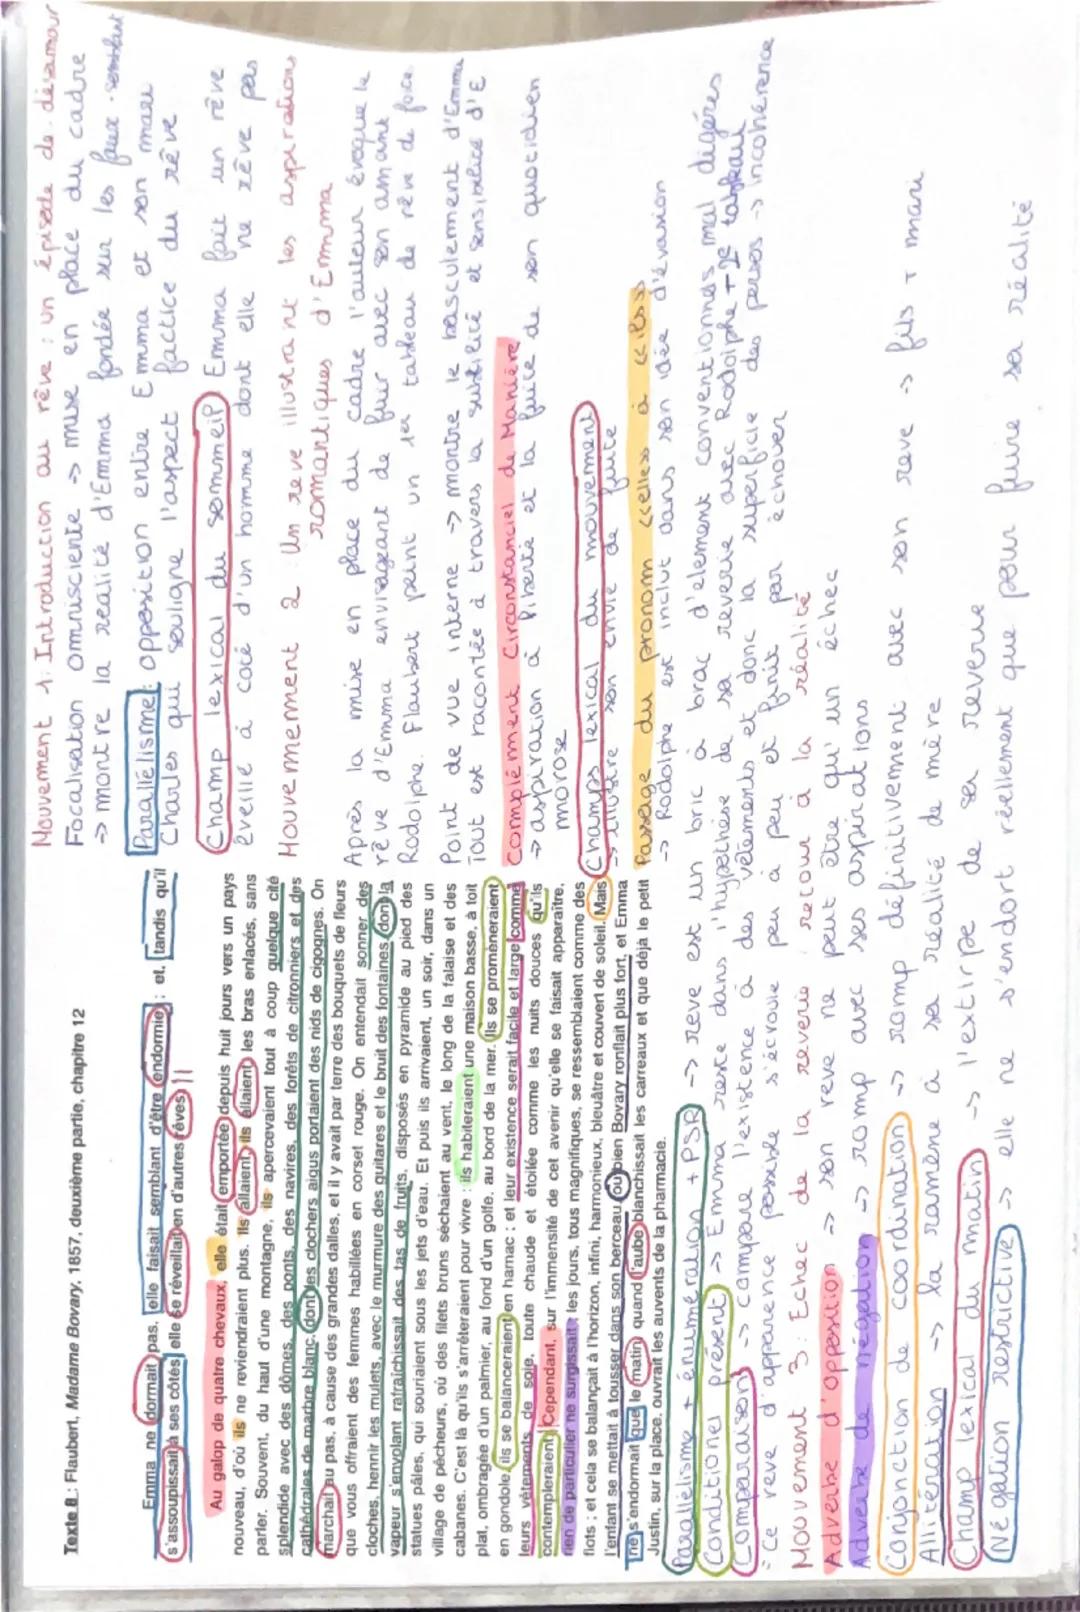 Texte 8 : Flaubert, Madame Bovary, 1857, deuxième partie, chapitre 12
Emma ne dormait pas, elle faisait semblant d'être endormie ; et, tandis qu'il
s'assoupissait à ses côtés, elle se réveillait en d'autres rêves.
Au galop de quatre chevaux, elle était emportée depuis huit jours vers un pays
nouveau, d'où ils ne reviendraient plus. Ils allaient, ils allaient, les bras enlacés, sans
parler. Souvent, du haut d'une montagne, ils apercevaient tout à coup quelque cité
splendide avec des dômes, des ponts, des navires, des forêts de citronniers et des
cathédrales de marbre blanc, dont les clochers aigus portaient des nids de cigognes. On
marchait au pas, à cause des grandes dalles, et il y avait par terre des bouquets de fleurs
que vous offraient des femmes habillées en corset rouge. On entendait sonner des
cloches, hennir les mulets, avec le murmure des guitares et le bruit des fontaines, dont la
vapeur s'envolant rafraîchissait des tas de fruits, disposés en pyramide au pied des
statues pâles, qui souriaient sous les jets d'eau. Et puis ils arrivaient, un soir, dans un
village de pêcheurs, où des filets bruns séchaient au vent, le long de la falaise et des
cabanes. C'est là qu'ils s'arrêteraient pour vivre : ils habiteraient une maison basse, à toit
plat, ombragée d'un palmier, au fond d'un golfe, au bord de la mer. Ils se promèneraient
en gondole, ils se balanceraient en hamac ; et leur existence serait facile et large comme
leurs vêtements de soie, toute chaude et étoilée comme les nuits douces qu'ils
contempleraient. Cependant, sur l'immensité de cet avenir qu'elle se faisait apparaître,
rien de particulier ne surgissait ; les jours, tous magnifiques, se ressemblaient comme des
flots ; et cela se balançait à l'horizon, infini, harmonieux, bleuâtre et couvert de soleil. Mais
l'enfant se mettait à tousser dans son berceau, ou bien Bovary ronflait plus fort, et Emma
ne s'endormait que le matin, quand l'aube blanchissait les carreaux et que déjà le petit
Justin, sur la place, ouvrait les auvents de la pharmacie.
Mouvement 1: Introduction au rêve : un épisode de désamour
Focalisation omnisciente -> mise en place du cadre
-> montre la realité d'Emma fondée sur les faux-semblant
Parallélisme: opposition entre Emma et son mari
Charles qui souligne l'aspect factice du rêve
Champ lexical du sommeil Emma fait un rêve
éveillé à coté d'un homme dont elle ne rêve pas
Mouvement 2 : Un reve illustrant les aspirations
romantiques d'Emma
Après la mise en place du cadre l'auteur évoque le
rêve d'Emma envisageant de fuir avec son amant
Rodolphe. Flaubert peint un 1er tableau de rêve de fuite
Point de vue interne -> montre le basculement d'Emma
Tout est racontée à travers la subtilité et sensibilité d'E
Complément Circonstanciel de Manière
-> aspiration à liberté et la fuite de son quotidien
morose
Champs lexical du mouvement
-> illustre son envie de fuite
Passage du pronom «elle» à «ils»
-> Rodolphe est inclut dans son idée d'évasion
Parallélisme + énumération + PSR -> reve est un bric à brac d'element conventionnels mal digérés
Conditionel présent -> Emma reste dans l'hypothèse de sa reverie avec Rodolphe + 2e tableau
Comparaison -> compare l'existence à des vêtements et donc la superficie des persos -> incohérence
Ce reve d'apparence possible s'écroule peu à peu et finit par échouer
Mouvement 3 : Echec de la reverie, retour à la réalité
Adverbe d'opposition -> son reve ne peut être qu'un échec
Adverbe de négation -> romp avec ses aspirations
Conjonction de coordination -> romp définitivement avec son reve -> fils + mari
Allitération -> la ramène à sa réalité de mère
Champ lexical du matin -> l'extirpe de sa reverie
Négation restrictive -> elle ne s'endort réellement que pour fuire sa réalité